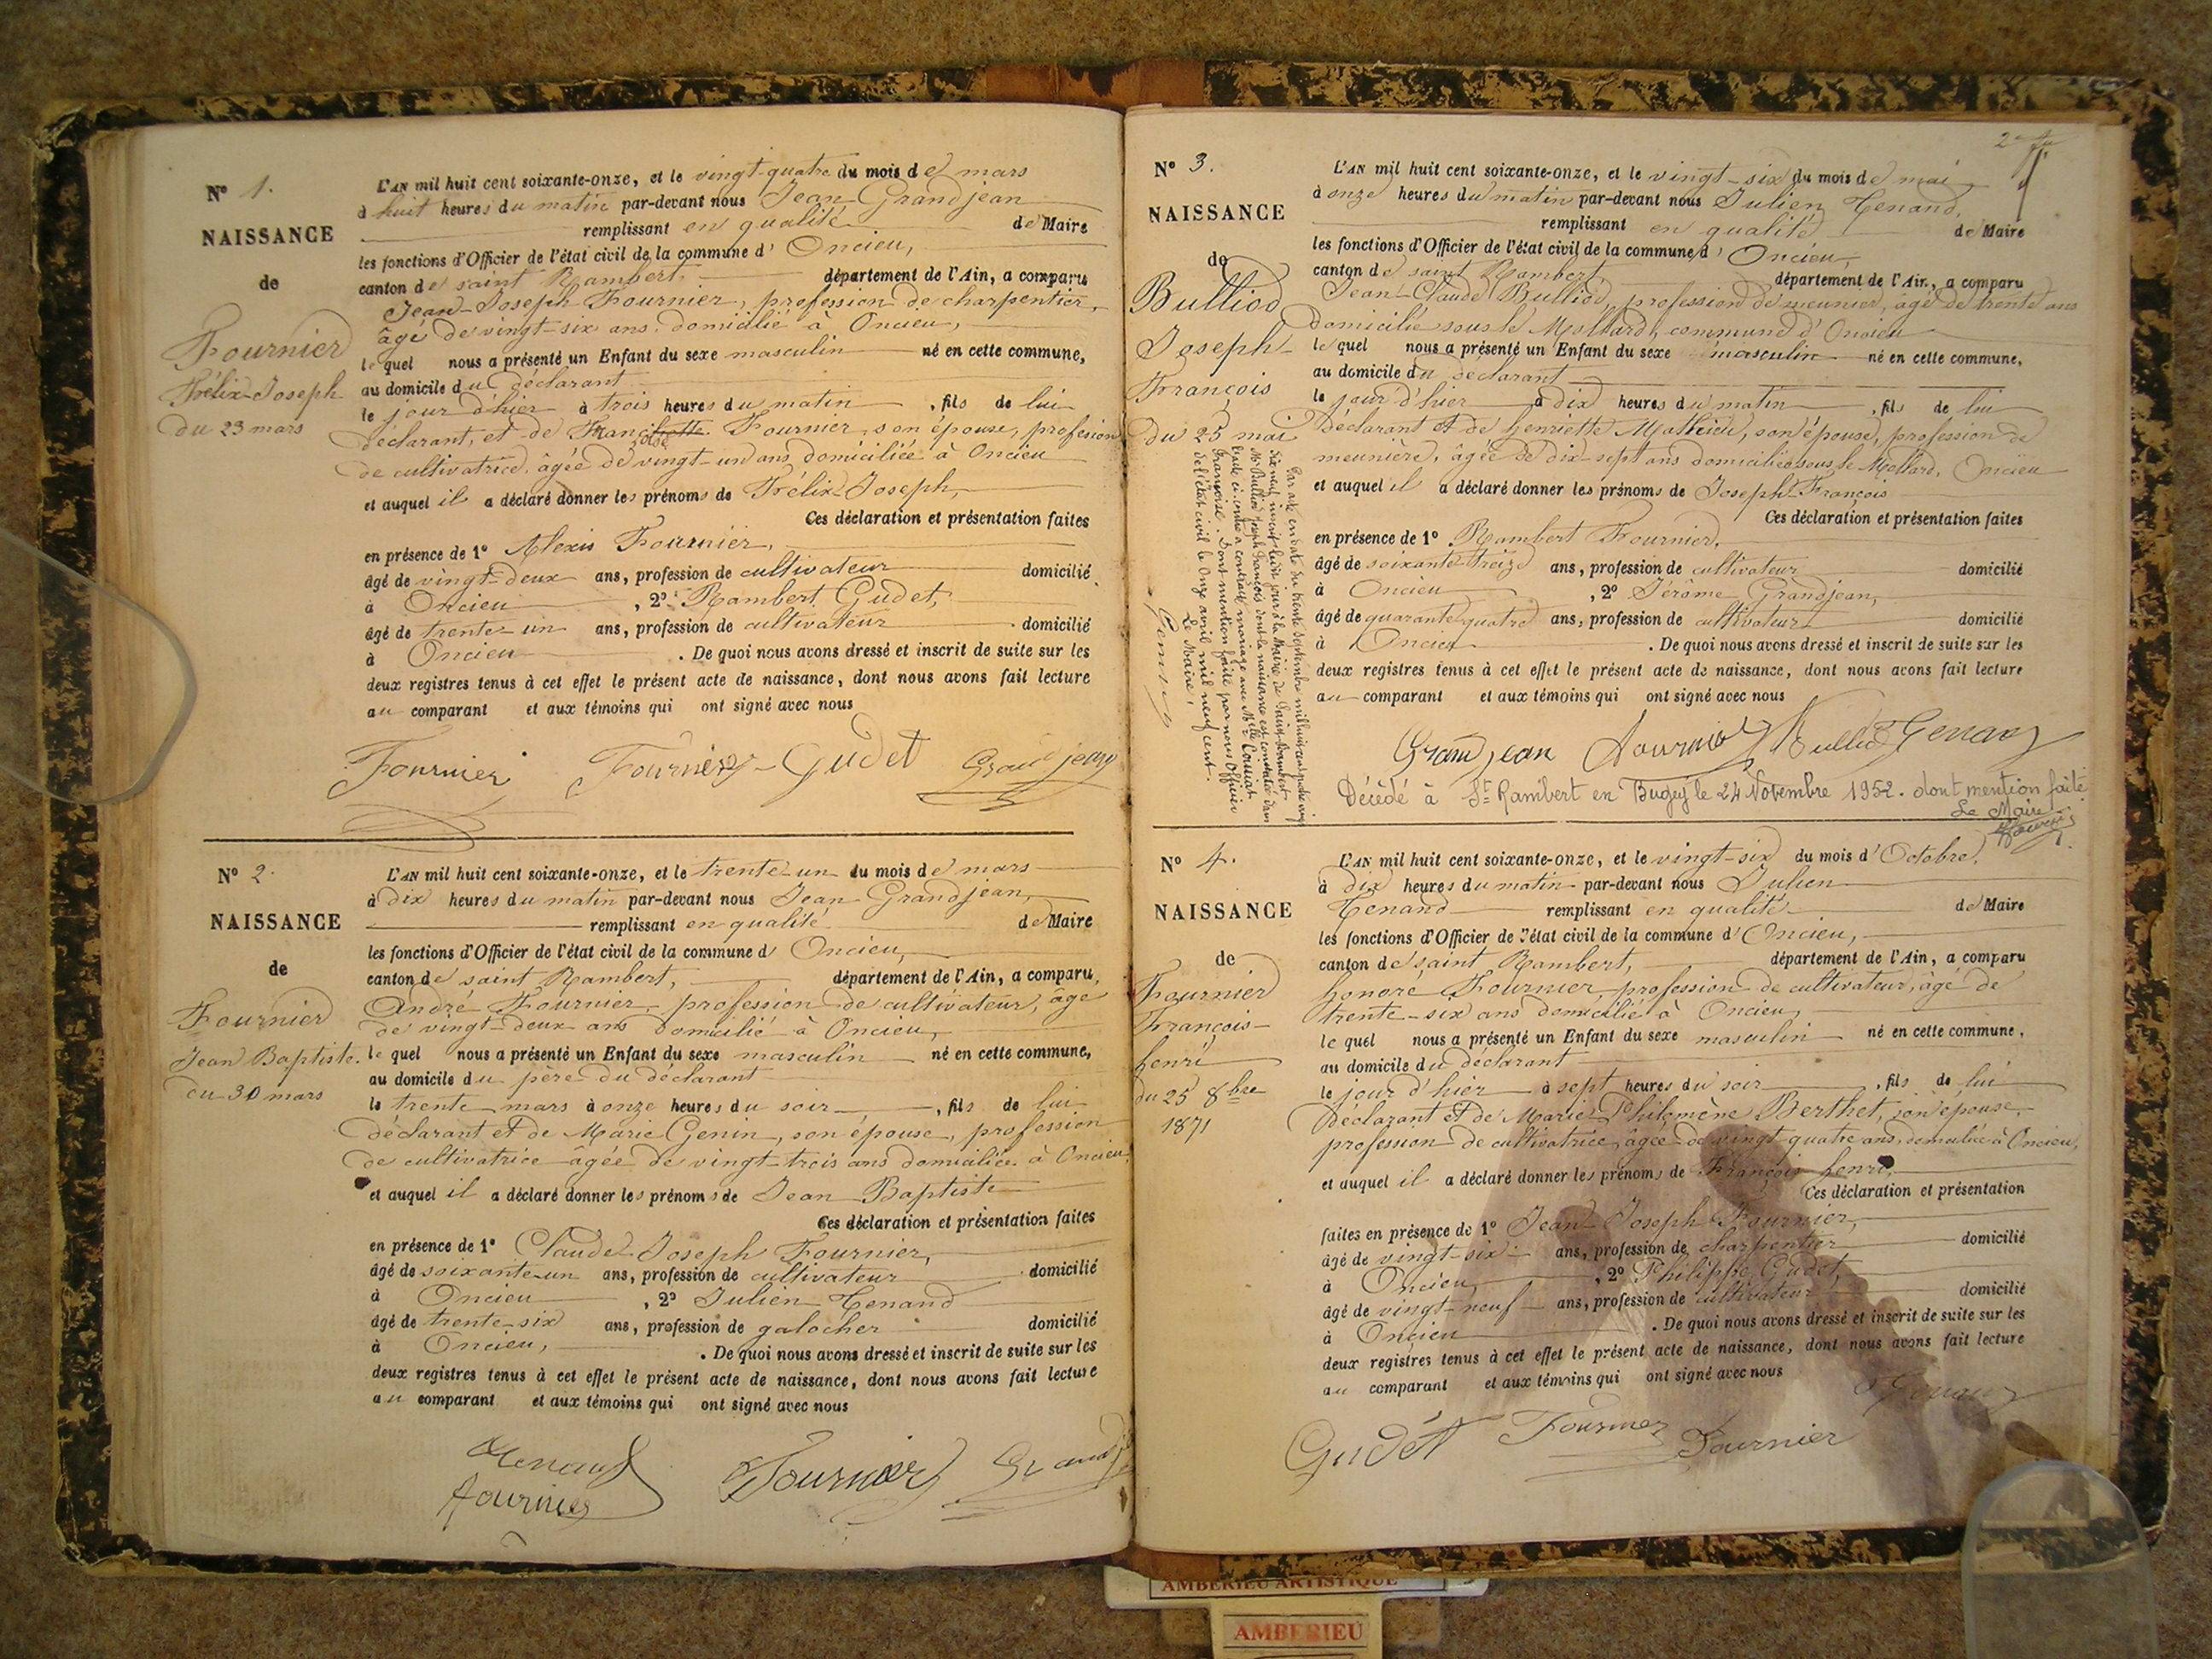 N° 1.
NAISSANCE
de
Fournier
Félix-Joseph
du 23 mars
L'AN mil huit cent soixante-onze, et le vingt-quatre du mois de mars
à huit heures du matin par-devant nous Jean Grandjean
remplissant en qualité de Maire
les fonctions d'Officier de l'état civil de la commune d' Oncieu,
canton de saint Rambert, département de l'Ain, a comparu
Jean-Joseph Fournier, profession de charpentier,
âgé de vingt-six ans, domicilié à Oncieu,
lequel nous a présenté un Enfant du sexe masculin né en cette commune,
au domicile du déclarant
le jour d'hier à trois heures du matin, fils de lui
déclarant, et de Fournier, son épouse, profession
de cultivatrice, âgée de vingt-un ans, domiciliée à Oncieu
et auquel il a déclaré donner les prénoms de Félix-Joseph,
Ces déclaration et présentation faites
en présence de 1° Alexis Fournier,
âgé de vingt-deux ans, profession de cultivateur domicilié
à Oncieu, 2° Rambert Gudet,
âgé de trente-un ans, profession de cultivateur domicilié
à Oncieu. De quoi nous avons dressé et inscrit de suite sur les
deux registres tenus à cet effet le présent acte de naissance, dont nous avons fait lecture
au comparant et aux témoins qui ont signé avec nous
Fournier Fournier Gudet Grandjean
N° 2.
NAISSANCE
de
Fournier
Jean Baptiste.
du 30 mars
L'AN mil huit cent soixante-onze, et le trente-un du mois de mars
à dix heures du matin par-devant nous Jean Grandjean,
remplissant en qualité de Maire
les fonctions d'Officier de l'état civil de la commune d' Oncieu,
canton de saint Rambert, département de l'Ain, a comparu,
André Fournier, profession de cultivateur, âgé
de vingt-deux ans domicilié à Oncieu,
lequel nous a présenté un Enfant du sexe masculin né en cette commune,
au domicile du père du déclarant
le trente mars à onze heures du soir, fils de lui
déclarant et de Marie Genin, son épouse, profession
de cultivatrice âgée de vingt-trois ans domiciliée à Oncieu
et auquel il a déclaré donner les prénoms de Jean Baptiste
Ces déclaration et présentation faites
en présence de 1° Claude-Joseph Fournier,
âgé de soixante-un ans, profession de cultivateur domicilié
à Oncieu, 2° Julien Tenand
âgé de trente-six ans, profession de galocher domicilié
à Oncieu,. De quoi nous avons dressé et inscrit de suite sur les
deux registres tenus à cet effet le présent acte de naissance, dont nous avons fait lecture
au comparant et aux témoins qui ont signé avec nous
Tenand Fournier Grandj
Fournier
N° 3.
NAISSANCE
de
Bulliod
Joseph-
François
du 25 mai
L'AN mil huit cent soixante-onze, et le vingt-six du mois de mai
à onze heures du matin par-devant nous Julien Tenand,
remplissant en qualité de Maire
les fonctions d'Officier de l'état civil de la commune d' Oncieu,
canton de saint Rambert département de l'Ain, a comparu
Jean-Claude Bulliod, profession de meunier, âgé de trente ans
domicilié sous le Mollard, commune d'Oncieu
lequel nous a présenté un Enfant du sexe masculin né en cette commune,
au domicile du déclarant
le jour d'hier à dix heures du matin, fils de lui
déclarant et de henriette Mathieu, son épouse, profession de
meunière, âgée de dix-sept ans domiciliée sous le Mollard, Oncieu
et auquel il a déclaré donner les prénoms de Joseph-François
Ces déclaration et présentation faites
en présence de 1° Rambert Fournier,
âgé de soixante-treize ans, profession de cultivateur domicilié
à Oncieu, 2° Jérôme Grandjean,
âgé de quarante-quatre ans, profession de cultivateur domicilié
à Oncieu. De quoi nous avons dressé et inscrit de suite sur les
deux registres tenus à cet effet le présent acte de naissance, dont nous avons fait lecture
au comparant et aux témoins qui ont signé avec nous
Grandjean Fournier Bulliod Tenand
Décédé à St Rambert en Bugey le 24 Novembre 1952. dont mention faite
Le Maire
Par acte en date du trente septembre mil huit cent quatre vingt
seize, inscrit le dit jour à la Mairie de Saint-Rambert
Mr Bulliod Joseph François dont la naissance est constatée dans
l'acte ci-contre a contracté mariage avec Melle
Françoise. Dont mention faite par nous Officier
de l'état civil le Onze avril mil neuf cent.
Le Maire,
Tenand
N° 4.
NAISSANCE
de
Fournier
François-
henri
du 25 8bre
1871
L'AN mil huit cent soixante-onze, et le vingt-six du mois d' Octobre,
à dix heures du matin par-devant nous Julien
Tenand remplissant en qualité de Maire
les fonctions d'Officier de l'état civil de la commune d' Oncieu,
canton de saint Rambert, département de l'Ain, a comparu
honoré Fournier, profession de cultivateur, âgé de
trente-six ans domicilié à Oncieu,
lequel nous a présenté un Enfant du sexe masculin né en cette commune,
au domicile du déclarant
le jour d'hier à sept heures du soir, fils de lui
déclarant et de Marie-Philomène Berthet, son épouse,
profession de cultivatrice, âgée de vingt-quatre ans, domiciliée à Oncieu,
et auquel il a déclaré donner les prénoms de François henri,
Ces déclaration et présentation
faites en présence de 1° Jean-Joseph Fournier,
âgé de vingt-six ans, profession de charpentier domicilié
à Oncieu, 2° Philippe Gudet,
âgé de vingt-neuf ans, profession de cultivateur domicilié
à Oncieu. De quoi nous avons dressé et inscrit de suite sur les
deux registres tenus à cet effet le présent acte de naissance, dont nous avons fait lecture
au comparant et aux témoins qui ont signé avec nous
Tenand
Gudet Fournier Fournier
AMBERIEU ARTISTIQUE
AMBERIEU